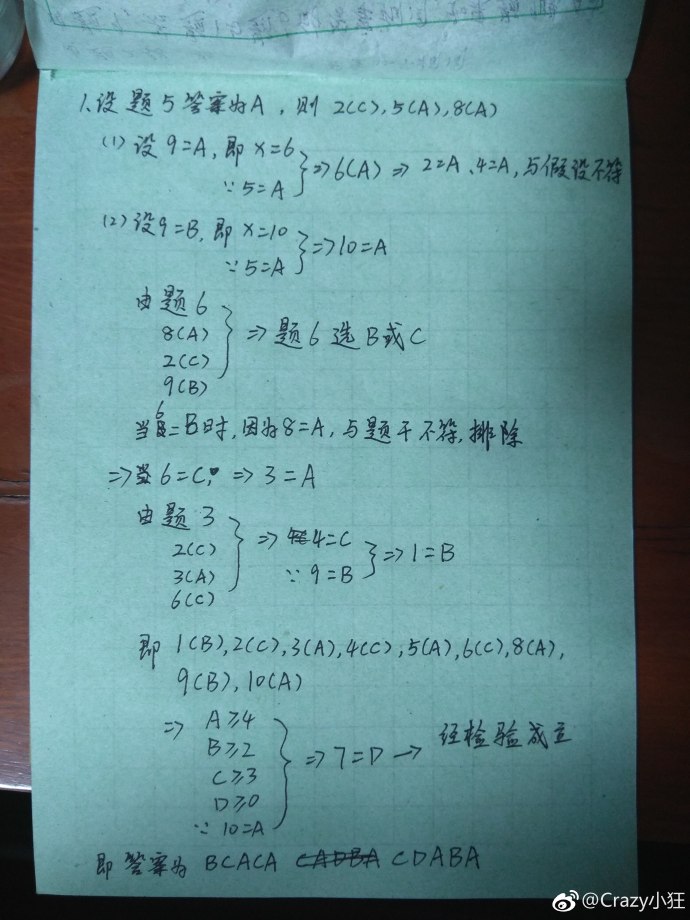 1.设题5答案为A，则2(C),5(A),8(A)
(1) 设9=A,即x=6
∵5=A
}⇒6(A)⇒2=A、4=A,与假设不符
(2) 设9=B,即x=10
∵5=A
}⇒10=A
由题6
8(A)
2(C)
9(B)
}⇒题6选B或C
当6=B时,因为8=A,与题干不符,排除
⇒当6=C,⇒3=A
由题3
2(C)
3(A)
6(C)
}⇒4=C
∵9=B
}⇒1=B
即1(B),2(C),3(A),4(C),5(A),6(C),8(A),
9(B),10(A)
⇒A≥4
B≥2
C≥3
D≥0
∵10=A
}⇒7=D→经检验成立
即答案为BCACA CADBA CDABA
@Crazy小狂